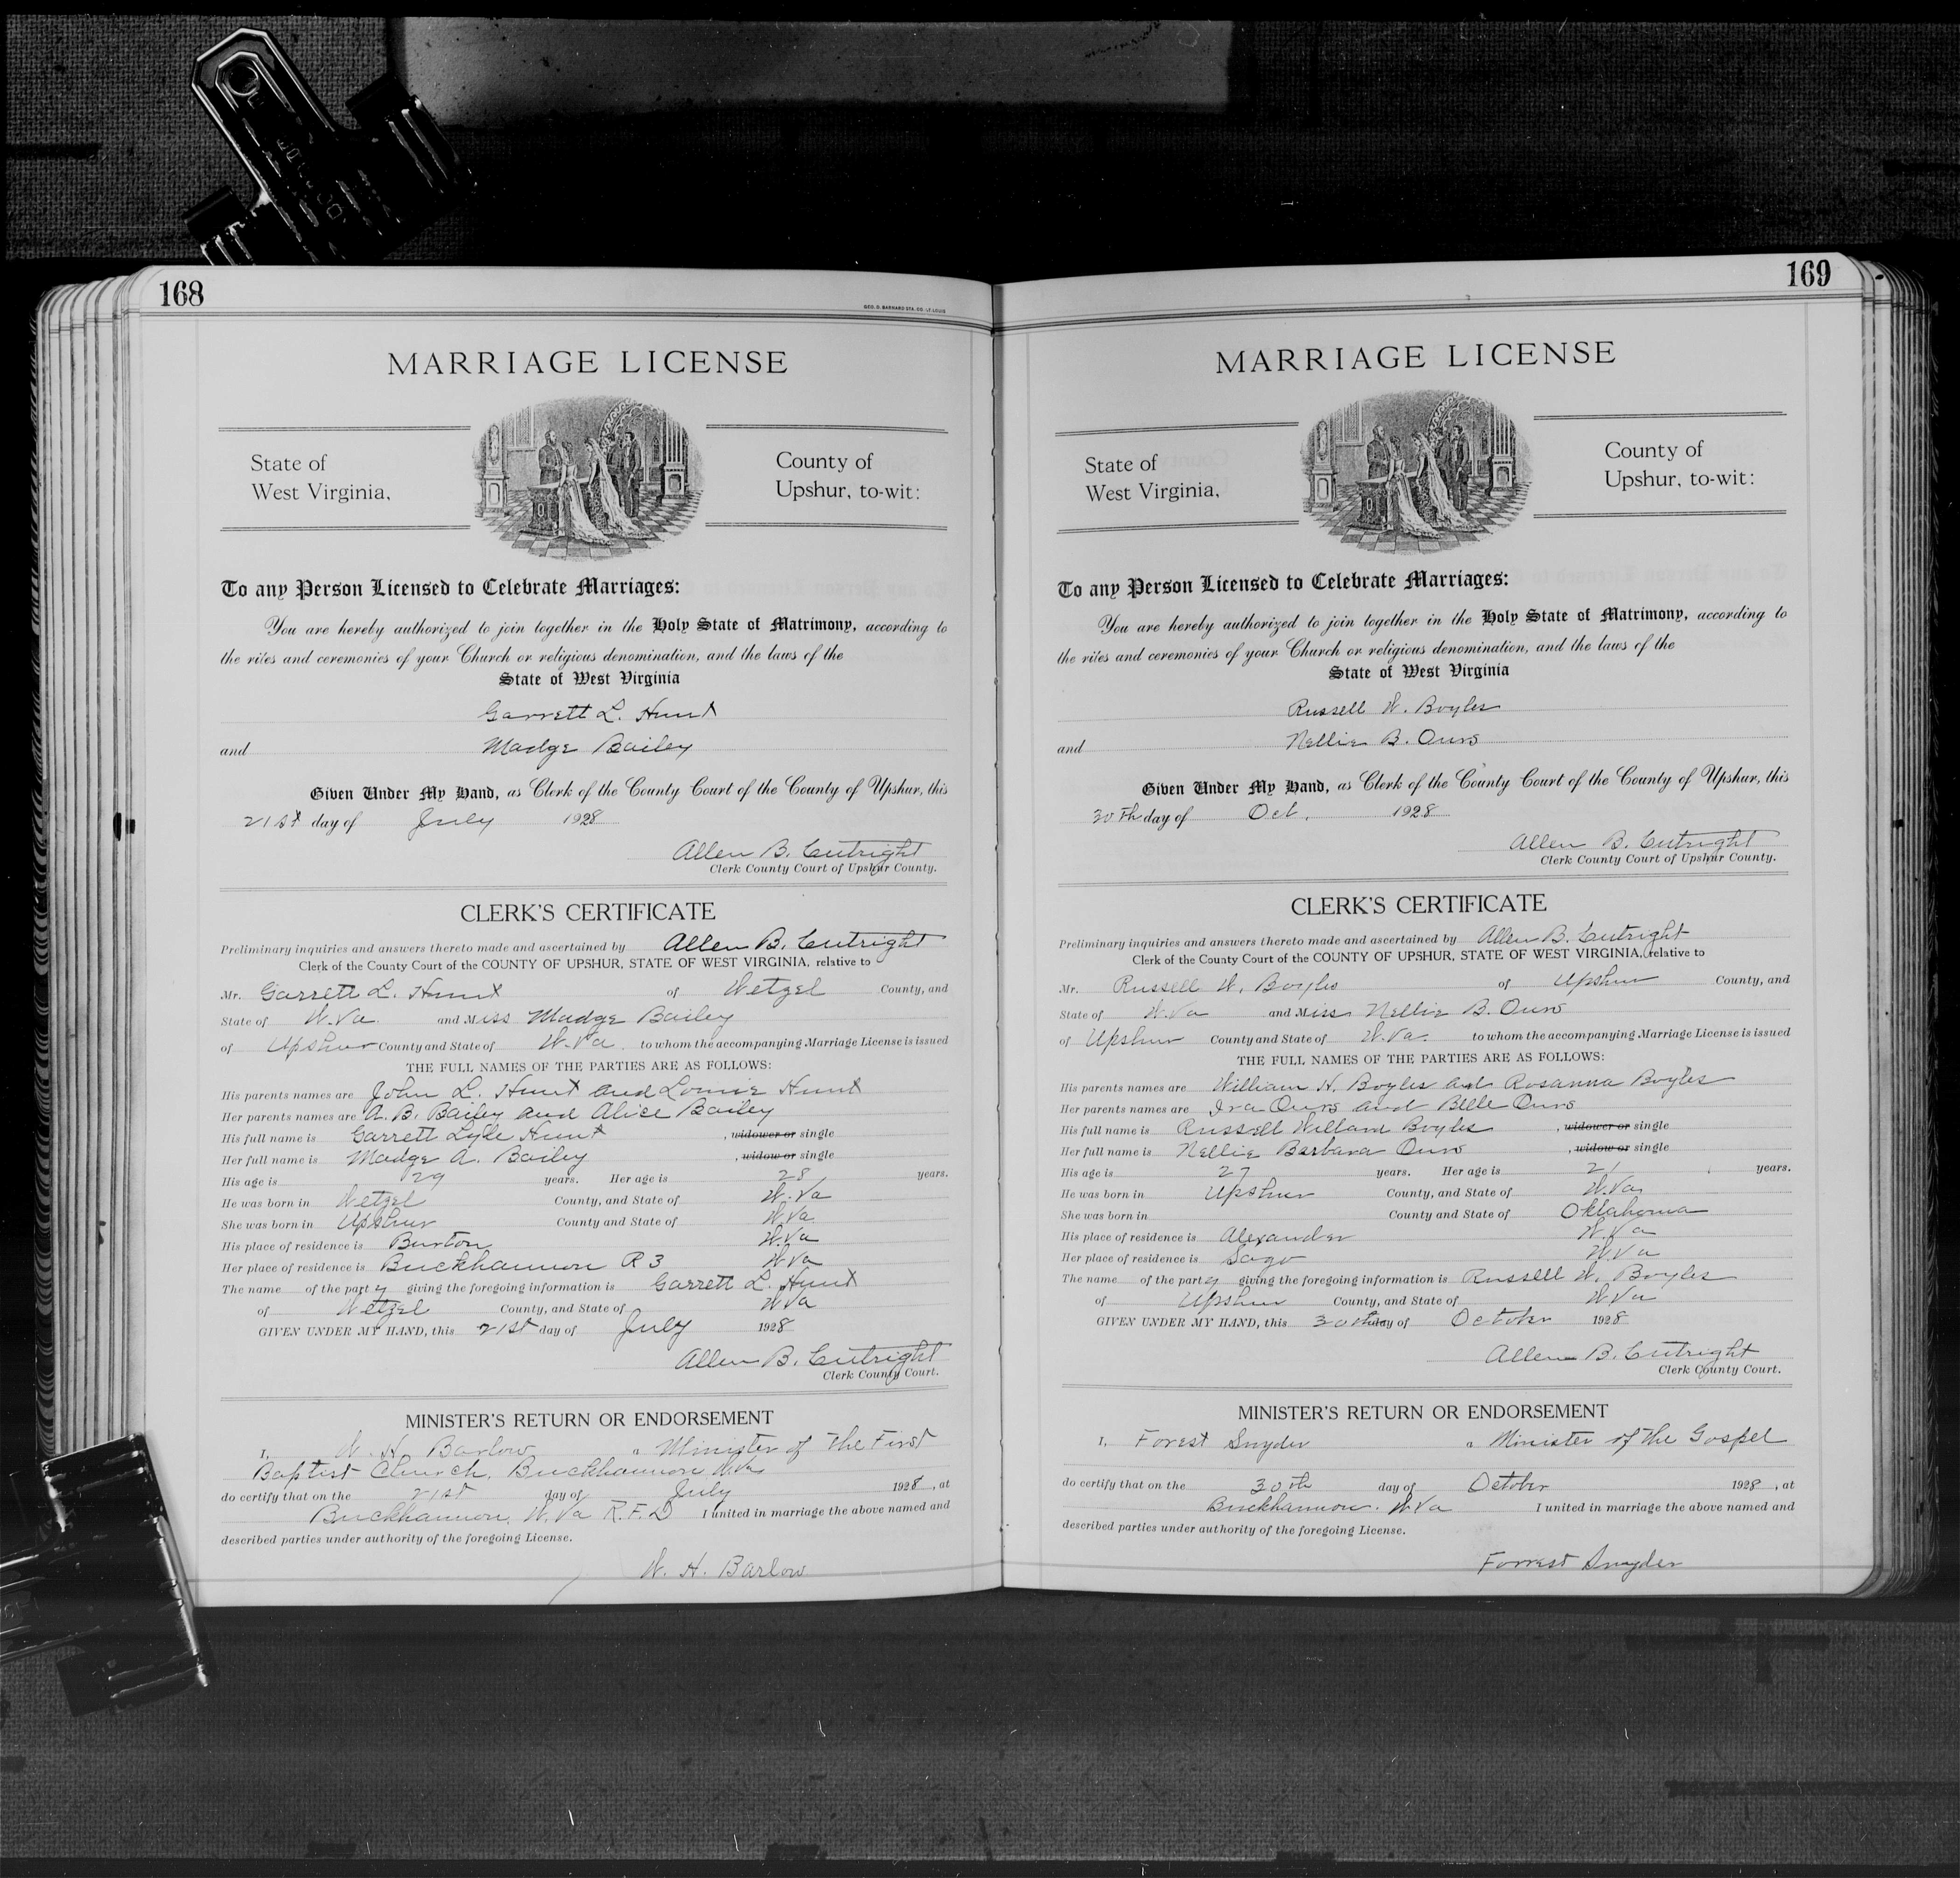 168
GEO. D. BARNARD STA. CO. ST. LOUIS
MARRIAGE LICENSE
State of
West Virginia,
County of
Upshur, to-wit:
To any Person Licensed to Celebrate Marriages:
You are hereby authorized to join together in the Holy State of Matrimony, according to
the rites and ceremonies of your Church or religious denomination, and the laws of the
State of West Virginia
Garrett L. Hunt
and Madge Bailey
Given Under My Hand, as Clerk of the County Court of the County of Upshur, this
21st day of July 1928
Allen B. Cutright
Clerk County Court of Upshur County.
CLERK'S CERTIFICATE
Preliminary inquiries and answers thereto made and ascertained by Allen B. Cutright
Clerk of the County Court of the COUNTY OF UPSHUR, STATE OF WEST VIRGINIA, relative to
Mr. Garrett L. Hunt of Wetzel County, and
State of W.Va. and Miss Madge Bailey
of Upshur County and State of W.Va. to whom the accompanying Marriage License is issued
THE FULL NAMES OF THE PARTIES ARE AS FOLLOWS:
His parents names are John L. Hunt and Louie Hunt
Her parents names are A. B. Bailey and Alice Bailey
His full name is Garrett Lyle Hunt , widower or single
Her full name is Madge A. Bailey , widow or single
His age is 29 years. Her age is 28 years.
He was born in Wetzel County, and State of W.Va
She was born in Upshur County and State of W.Va
His place of residence is Burton W.Va
Her place of residence is Buckhannon R 3 W.Va
The name of the party giving the foregoing information is Garrett L. Hunt
of Wetzel County, and State of W.Va
GIVEN UNDER MY HAND, this 21st day of July 1928
Allen B. Cutright
Clerk County Court.
MINISTER'S RETURN OR ENDORSEMENT
I, W. H. Barlow a Minister of The First
Baptist Church, Buckhannon W.Va
do certify that on the 21st day of July 1928, at
Buckhannon, W.Va R.F.D I united in marriage the above named and
described parties under authority of the foregoing License.
W. H. Barlow
169
MARRIAGE LICENSE
State of
West Virginia,
County of
Upshur, to-wit:
To any Person Licensed to Celebrate Marriages:
You are hereby authorized to join together in the Holy State of Matrimony, according to
the rites and ceremonies of your Church or religious denomination, and the laws of the
State of West Virginia
Russell W. Boyles
and Nellie B. Ours
Given Under My Hand, as Clerk of the County Court of the County of Upshur, this
30th day of Oct. 1928
Allen B. Cutright
Clerk County Court of Upshur County.
CLERK'S CERTIFICATE
Preliminary inquiries and answers thereto made and ascertained by Allen B. Cutright
Clerk of the County Court of the COUNTY OF UPSHUR, STATE OF WEST VIRGINIA, relative to
Mr. Russell W. Boyles of Upshur County, and
State of W.Va and Miss Nellie B. Ours
of Upshur County and State of W.Va. to whom the accompanying Marriage License is issued
THE FULL NAMES OF THE PARTIES ARE AS FOLLOWS:
His parents names are William H. Boyles and Rosanna Boyles
Her parents names are Ira Ours and Belle Ours
His full name is Russell Willard Boyles , widower or single
Her full name is Nellie Barbara Ours , widow or single
His age is 27 years. Her age is 21 years.
He was born in Upshur County, and State of W.Va.
She was born in County and State of Oklahoma
His place of residence is Alexander W.Va
Her place of residence is Sago W.Va
The name of the party giving the foregoing information is Russell W. Boyles
of Upshur County, and State of W.Va
GIVEN UNDER MY HAND, this 30th day of October 1928
Allen B. Cutright
Clerk County Court.
MINISTER'S RETURN OR ENDORSEMENT
I, Forest Snyder a Minister of the Gospel
do certify that on the 30th day of October 1928, at
Buckhannon. W.Va I united in marriage the above named and
described parties under authority of the foregoing License.
Forrest Snyder